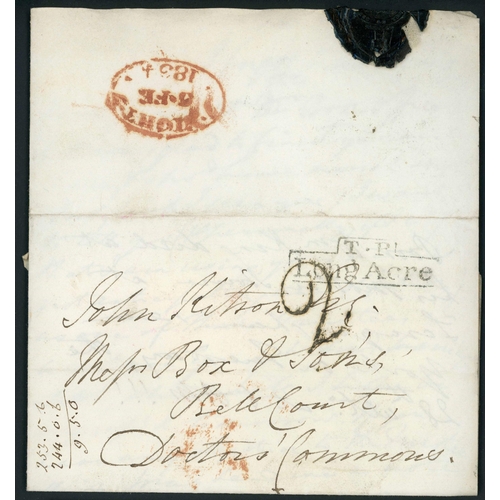 1834
NIGHT
T.P
Long Acre
2
John Kitson Esq.
Messrs Box & Sons,
Bell Court,
Doctors' Commons.
253.5.6
244.0.6
9.5.0